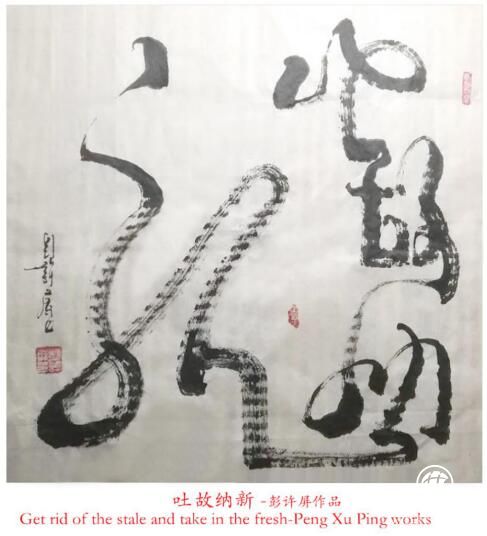 吐故纳
新
吐故纳新 -彭许屏作品
Get rid of the stale and take in the fresh-Peng Xu Ping works